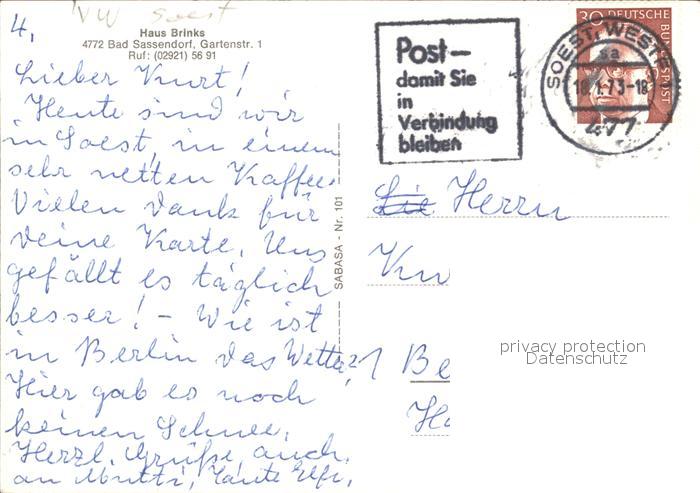 4,
VW Soest
Haus Brinks
4772 Bad Sassendorf, Gartenstr. 1
Ruf: (02921) 56 91
Lieber Kurt!
Heute sind wir
in Soest, in einem
sehr netten Kaffee.
Vielen Dank für
Deine Karte. Uns
gefällt es täglich
besser! - Wie ist
in Berlin das Wetter?
Hier gab es noch
keinen Schnee.
Herzl. Grüße auch
an Mutti, Tante Elfi,
SABASA - Nr. 101
Post-
damit Sie
in
Verbindung
bleiben
30 DEUTSCHE BUNDESPOST
SOEST, WESTF
sa
18.1.73-18
477
Herrn
Kur
1 Be
privacy protection
Datenschutz